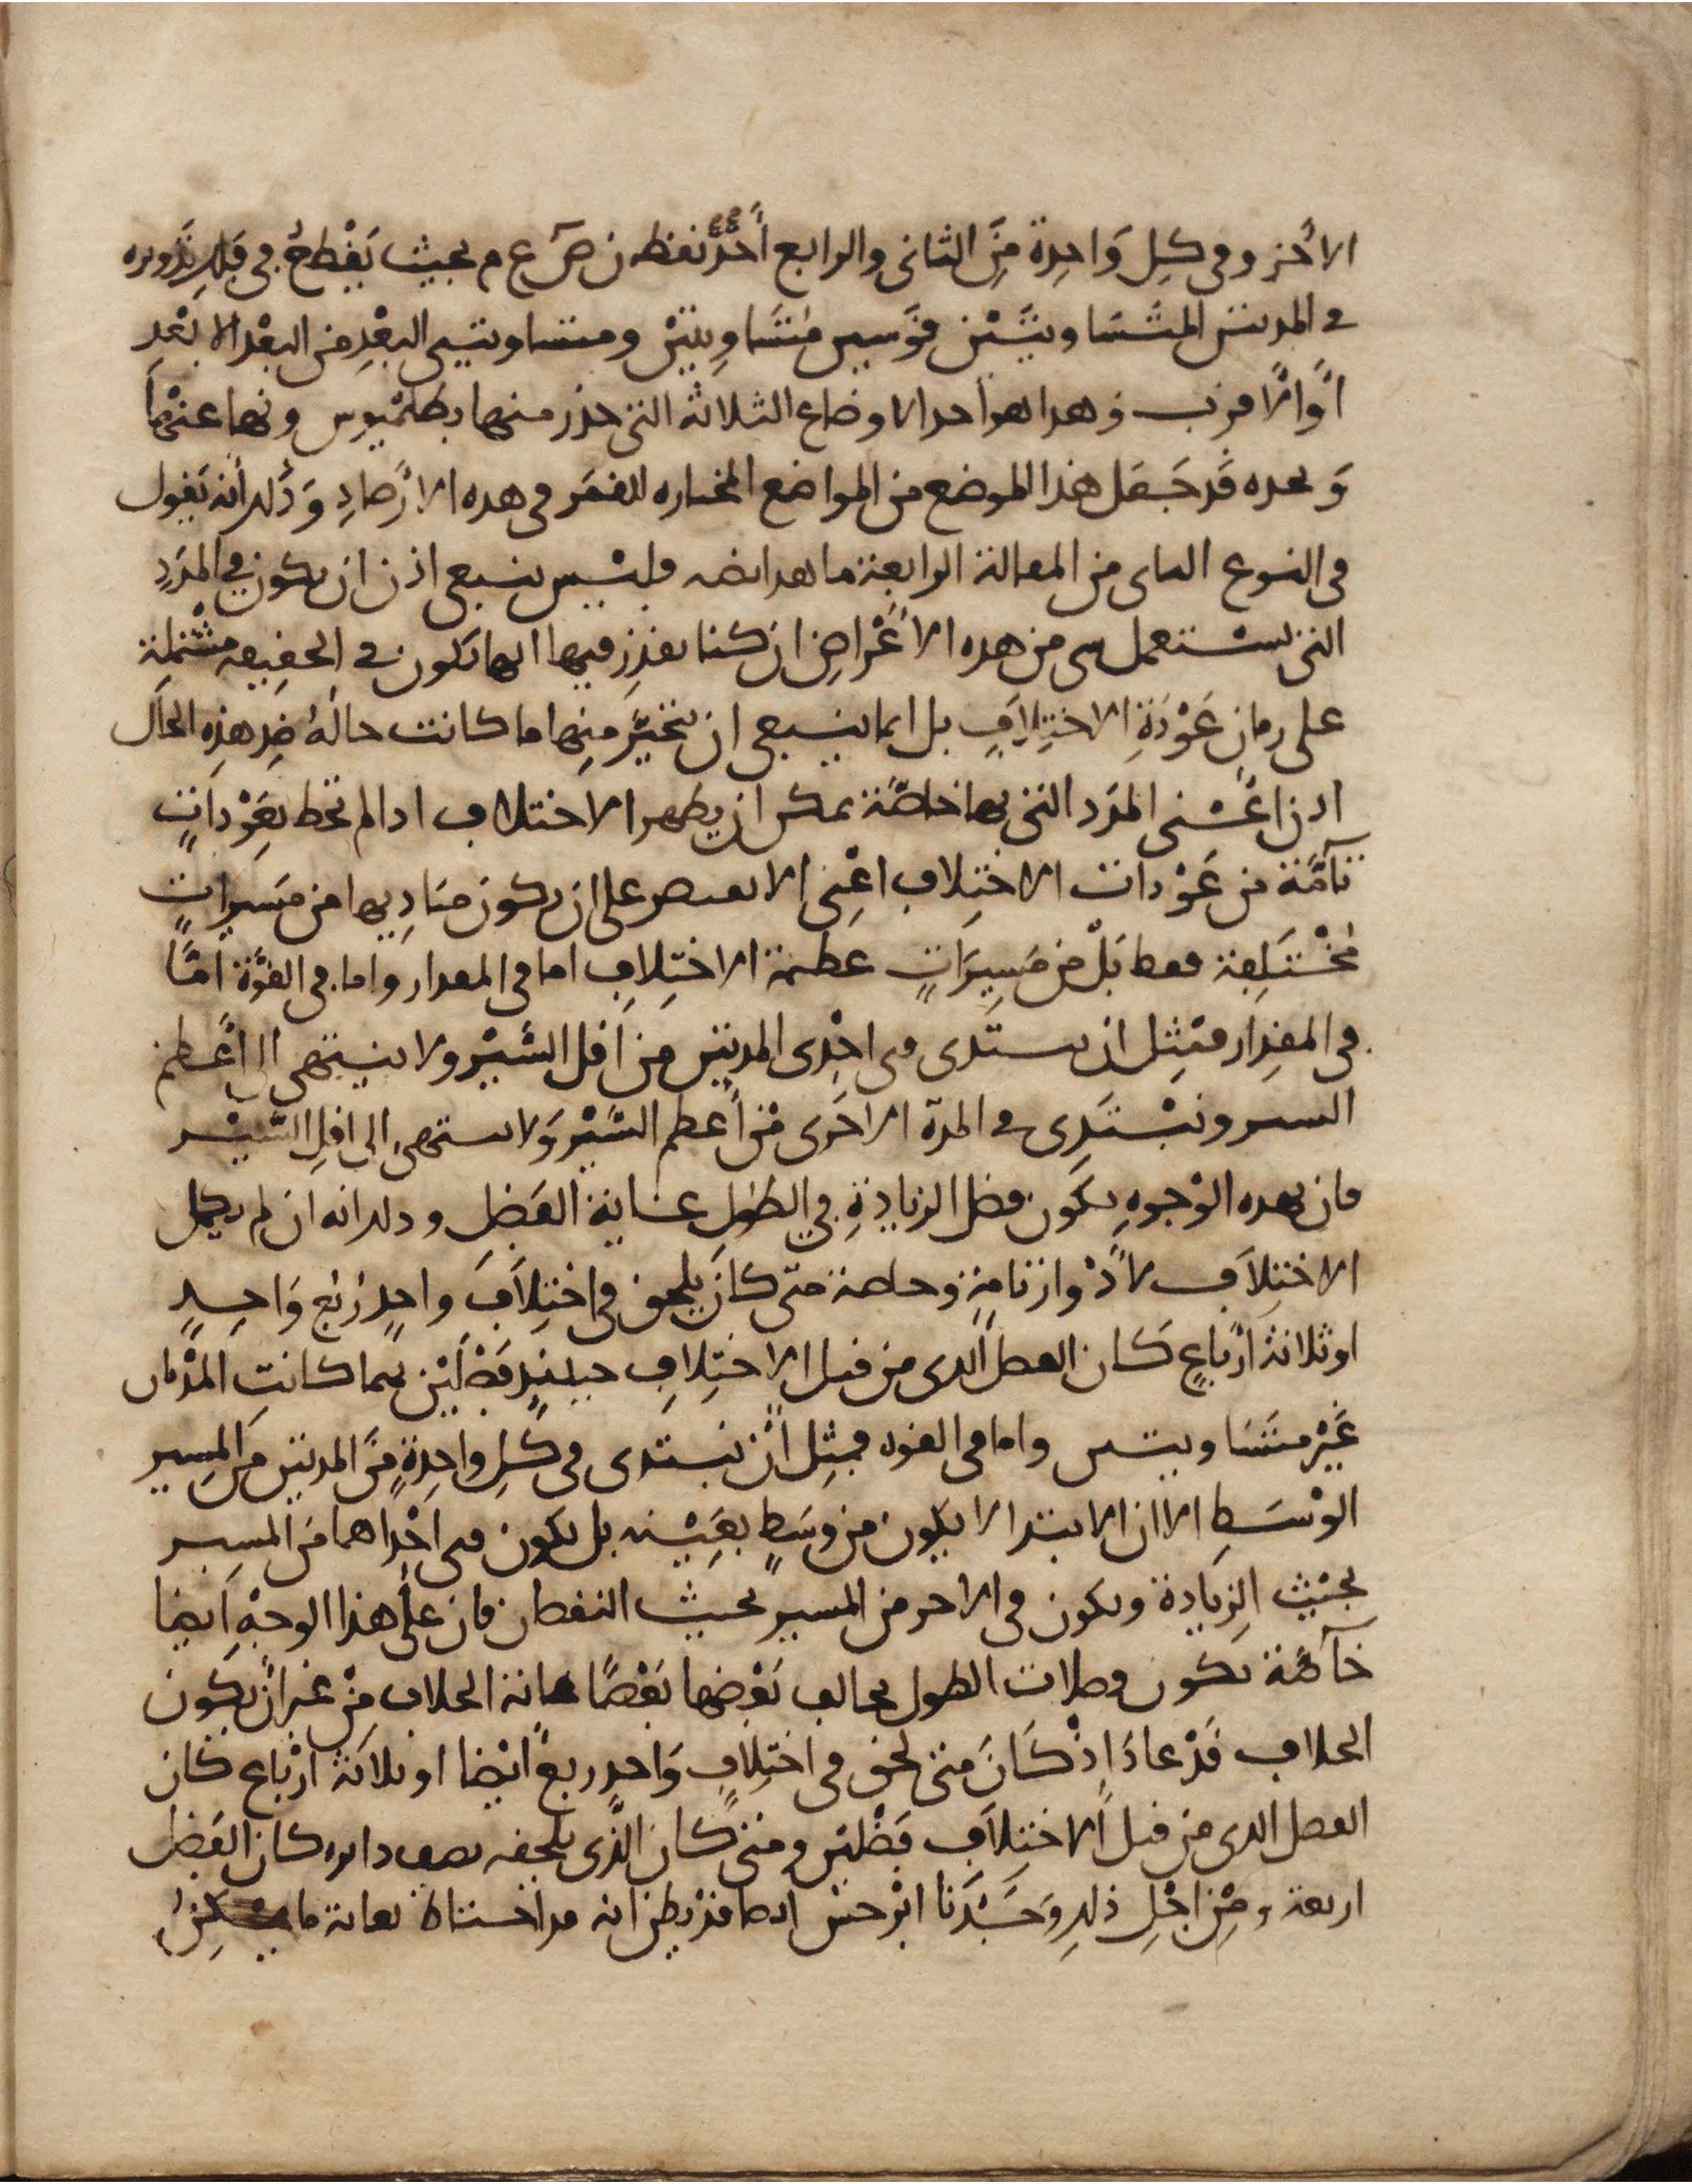 الأخر وفي كل واحدة من الثاني والرابع أحد نقط ن ص ع م بحيث يقطع في فلك تدويره
في المدتين المتساويتين قوسين متساويتين ومتساويتي البعد من البعد الابعد
أو الأقرب وهدا هو احد الاوضاع الثلاثة التي حذر منها بطلميوس ونها عنها
وَنجده قد جعل هذا الموضع من المواضع المختاره للقمر في هده الأرصادِ وَذلك أنه يقول
في النوع الثاني من المقالة الرابعة ما هدا نصه فليس ينبغي اذن ان يكون في المدد
التي تستعمل شي من هده الأغراض ان كنا نقدر فيها انها تكون في الحقيقه مشتملة
على زمان عَوْدَةِ الاختِلافِ بل انما ينبغي ان نتخيّر منها ما كانت حالهُ ضد هذه الحال
اذن اعني المدد التي بها خاصّة يمكن ان يظهر الاختلاف ادا لم تحط بعَوْداتٍ
تآمّة من عَوْدات الاختِلافِ اعْنِي الا نقتصر على ان يكون مبَادِيها من مَسِيراتٍ
مُخْتَلِفة فقط بَلْ من مَسِيرَاتٍ عظيمة الاختِلافِ اما في المقدار واما في القوّة أمّا
في المقدار فمِثِل ان نبتدى في احْدى المدتين من اقل السّيْر ولا ينتهي الى أعظم
السير ونبْتَدِى في المدة الاخرى من أعظم السَّيْر وَلا ينتهي الى اقلِ السّيْر
فان بهده الوجوهِ يكون فضل الزيادةِ في الطول غاية الفضل ودلك انه ان لم يكمل
الاختِلاَف لأدْوار تامةٍ وخاصة متى كانَ يلحق في اختِلاَفَ واحدٍ رُبْع وَاحدٍ
او ثلاثة أرْباعٍ كان الفضل الدي من قبل الاختِلافِ حينئذٍ فضْلَيْن بهما كانتِ المدْتان
غَيْر متَسَاويتين واما في القوه فمِثِل أنْ نبتدى في كلِ واحِدةٍ مِنَ المدتين من المسير
الوَسَطِ الا ان الابتدا لا يكون من وسَطٍ بعَيْنه بل يكون في احْداهما من المسير
بحيْث الزيادة ويكون في الاخر من المسير بحيث النقصان فان على هذا الوجْهِ ايضا
خآصّة تكون فضلات الطول يخالف بَعْضها بَعْضًا غاية الخلاف منْ غير أن يكون
الخلاف قَدْ عادَ اذْ كَانَ متى لحق في اختِلافٍ وَاحدٍ ربع ايْضا او ثلاثة ارْباع كان
الفضل الدي من قبل الاختلاَفِ فضْلين ومتى كان الذى يلحقه نصف دايره كان الفضل
اربعة ومِنْ اجْلِ ذلكِ وَجَدْنا ابرْخس ايضا قدْ يظن انه قد احتاط بغاية ما يمكن